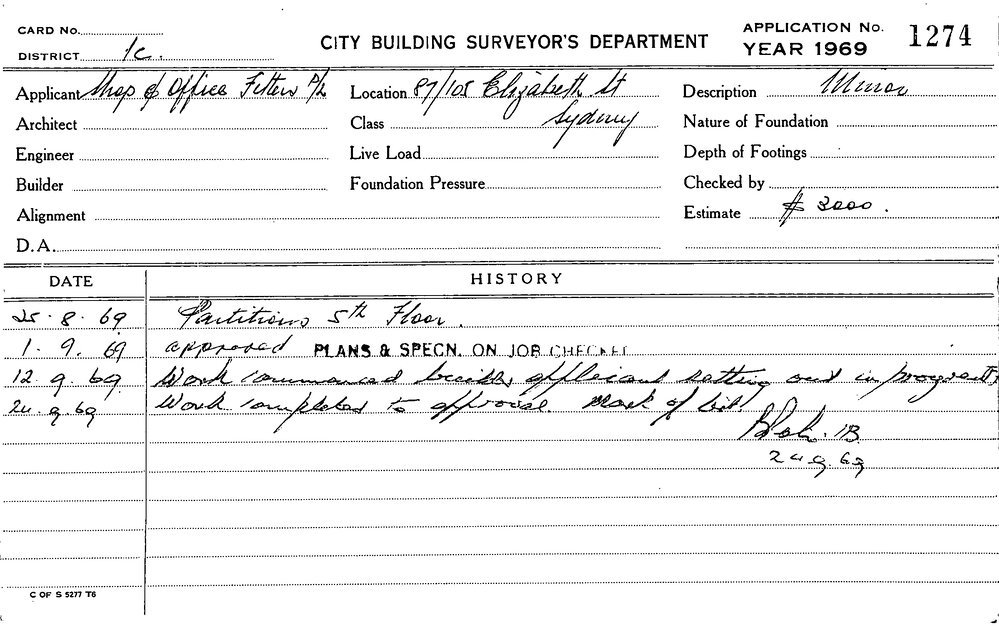 CARD No.
DISTRICT 1c.
CITY BUILDING SURVEYOR'S DEPARTMENT
APPLICATION No. 1274
YEAR 1969
Applicant Shop & Office Fitters P/L
Location 87/105 Elizabeth St
Sydney
Description Minor
Architect
Class
Nature of Foundation
Engineer
Live Load
Depth of Footings
Builder
Foundation Pressure
Checked by
Alignment
Estimate $ 3000.
D.A.
DATE HISTORY
25.8.69 Partitions 5th Floor.
1.9.69 approved PLANS & SPECN. ON JOB CHECKED
12.9.69 Work commenced builder applicant setting out in progress
24.9.69 Work completed to approval. Mark off list.
24.9.69
C OF S 5277 T6